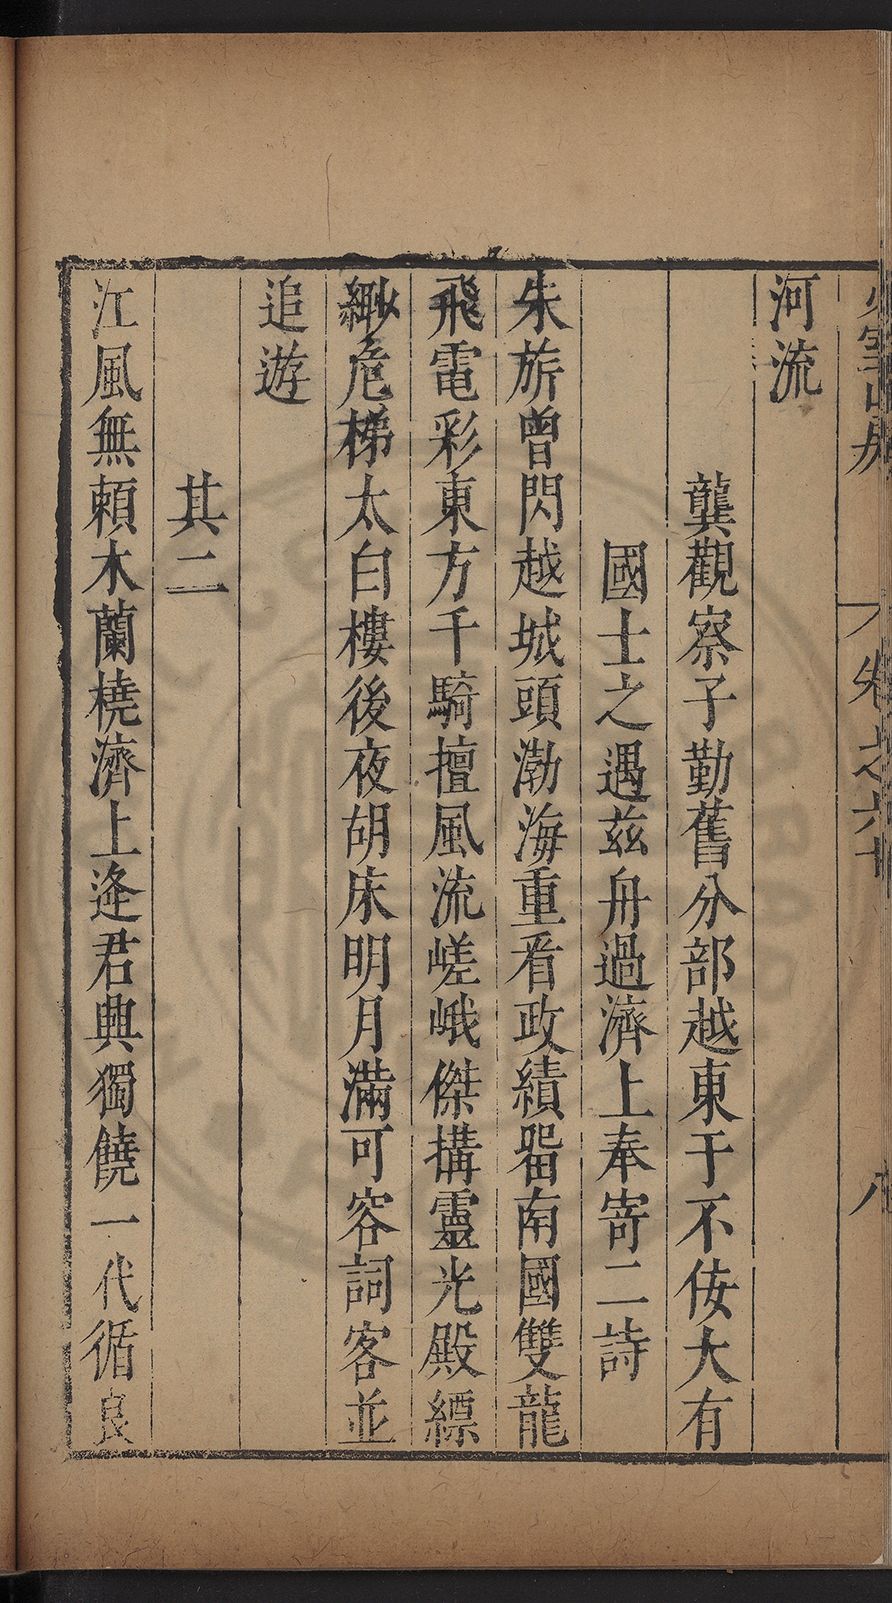 河流
龔觀察子勤舊分部越東于不佞大有
國士之遇茲舟過濟上奉寄二詩
朱旂曾閃越城頭渤海重看政績畱南國雙龍
飛電彩東方千騎擅風流嵯峨傑搆靈光殿縹
緲危梯太白樓後夜胡床明月滿可容詞客並
追遊
其二
江風無賴木蘭橈濟上逢君興獨饒一代循良